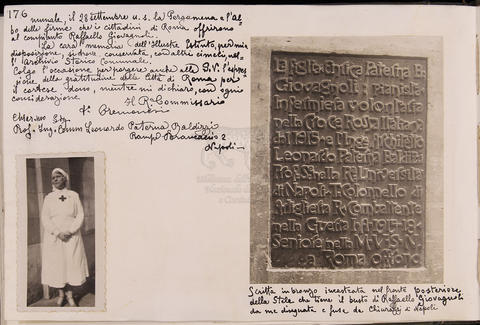 176
munale, il 28 settembre u. s. la Pergamena e l'al-
bo delle firme che i cittadini di Roma offrirono
al compianto Raffaello Giovagnoli.
La cara memoria dell'illustre Estinto, per mia
disposizione, si deve conservata, con altri cimeli, nel-
l'Archivio Storico Comunale.
Colgo l'occasione per porgere anche alla S. V. l'espres
sione della gratitudine della Città di Roma per
il cortese dono, mentre mi dichiaro, con ogni
considerazione.
Il R. Commissario
Cremonesi
Prof. Ing. Comm. Leonardo Paterna Baldizzi
Rampe Brancaccio 2
Napoli
La figlia Anita Paterna B.
Giovagnoli : pianista
Infermiera volontaria
nella Croce Rossa Italiana
dal 1915 he l'ing.
Leonardo Paterna Baldizzi
Prof. nella R. Università
di Napoli T. Colonnello di
Artiglieria R. Combattente
nella Guerra 1915-18
Seniore nella M.V.S.N.
a Roma offrono
Scritta in bronzo incastrata nel fronte posteriore
della Stele che tiene il busto di Raffaello Giovagnoli
da me disegnata e fusa da Chiurazzi a Napoli